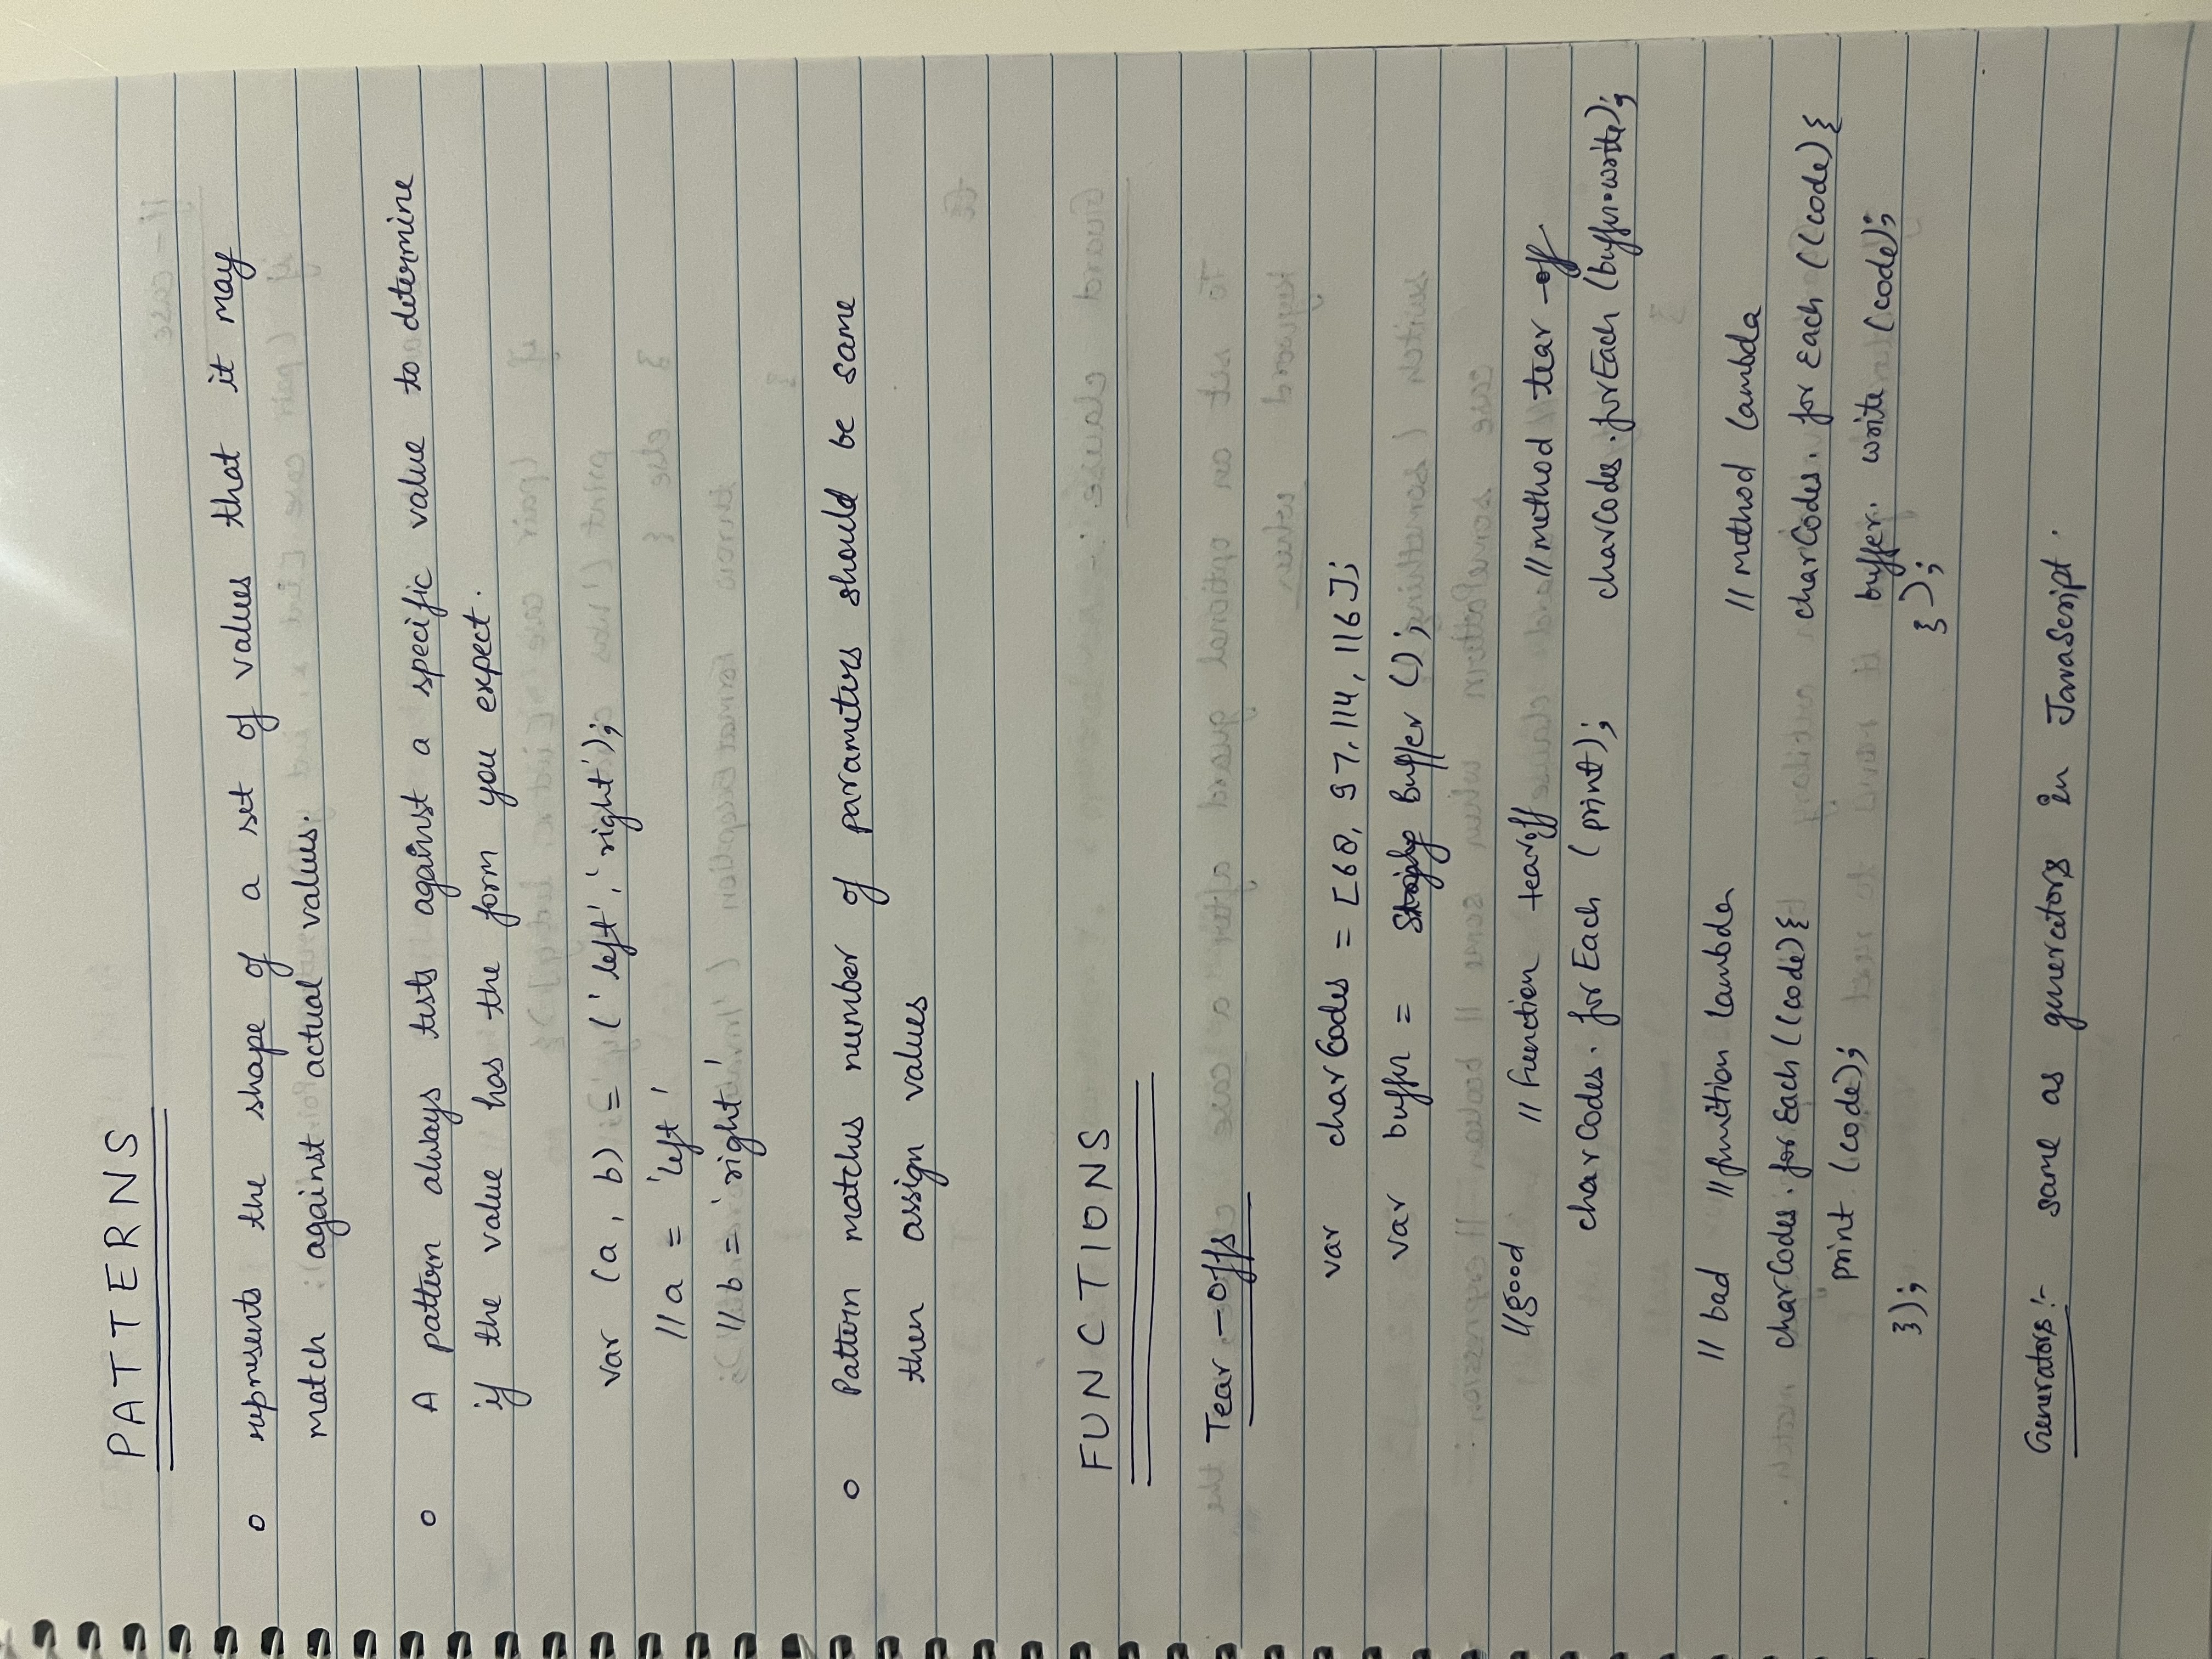 PATTERNS
o represents the shape of a set of values that it may
match against actual values.
o A pattern always tests against a specific value to determine
if the value has the form you expect.
var (a, b) = ('left', 'right');
//a = 'left'
//b = 'right'
o Pattern matches number of parameters should be same
then assign values
FUNCTIONS
Tear-offs
var charCodes = [68, 97, 114, 116];
var buffer = Buffer();
//good // Function tearoff //method tear-off
charCodes.forEach (print); charCodes.forEach (buffer.write);
// bad //function lambda // method lambda
charCodes.forEach ((code){ charCodes.forEach ((code){
print (code); buffer.write (code);
}); });
Generators:- same as generators in JavaScript.